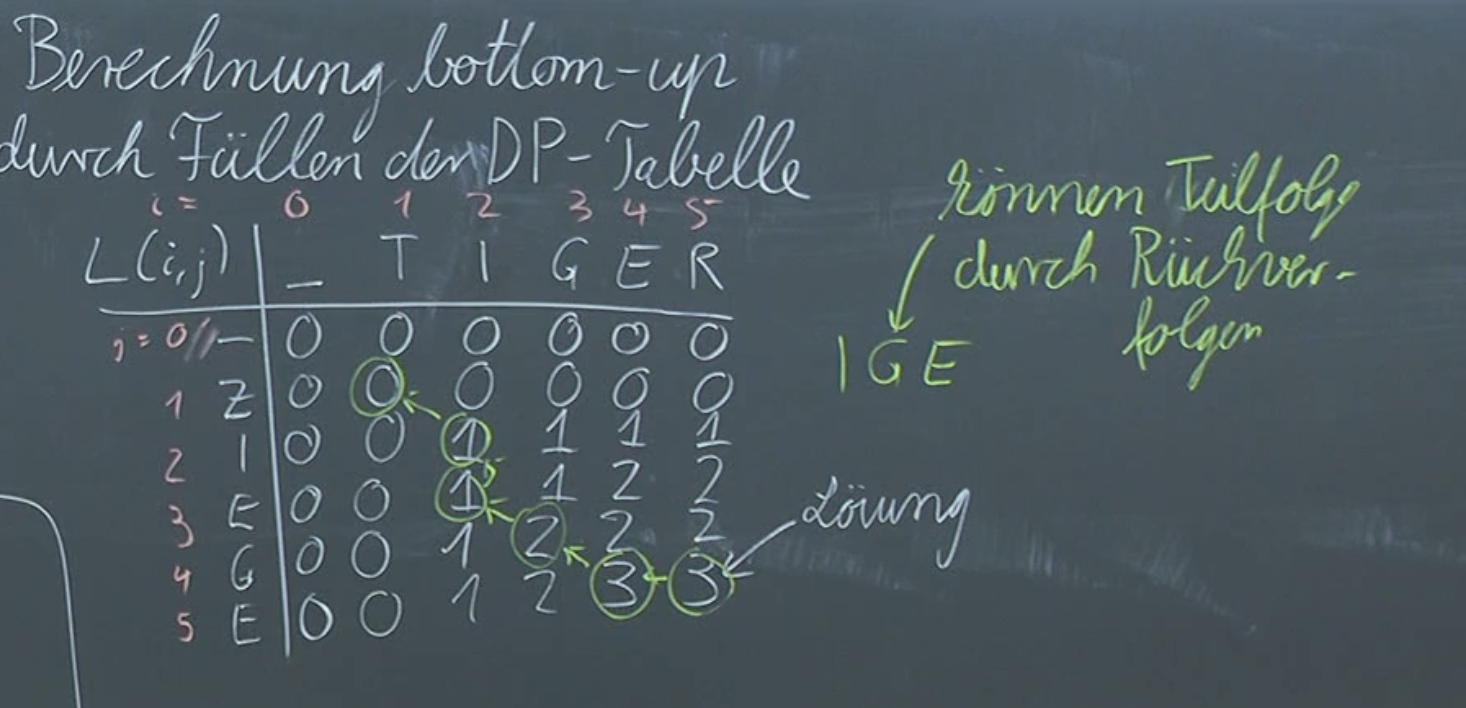 Berechnung bottom-up
durch Füllen der DP-Tabelle
i = 0 1 2 3 4 5
L(i,j) _ T I G E R
j = 0 _ 0 0 0 0 0 0
1 Z 0 0 0 0 0 0
2 I 0 0 1 1 1 1
3 E 0 0 1 1 2 2
4 G 0 0 1 2 2 2
5 E 0 0 1 2 3 3
Lösung
können Teilfolge
durch Rückver-
folgen
IGE